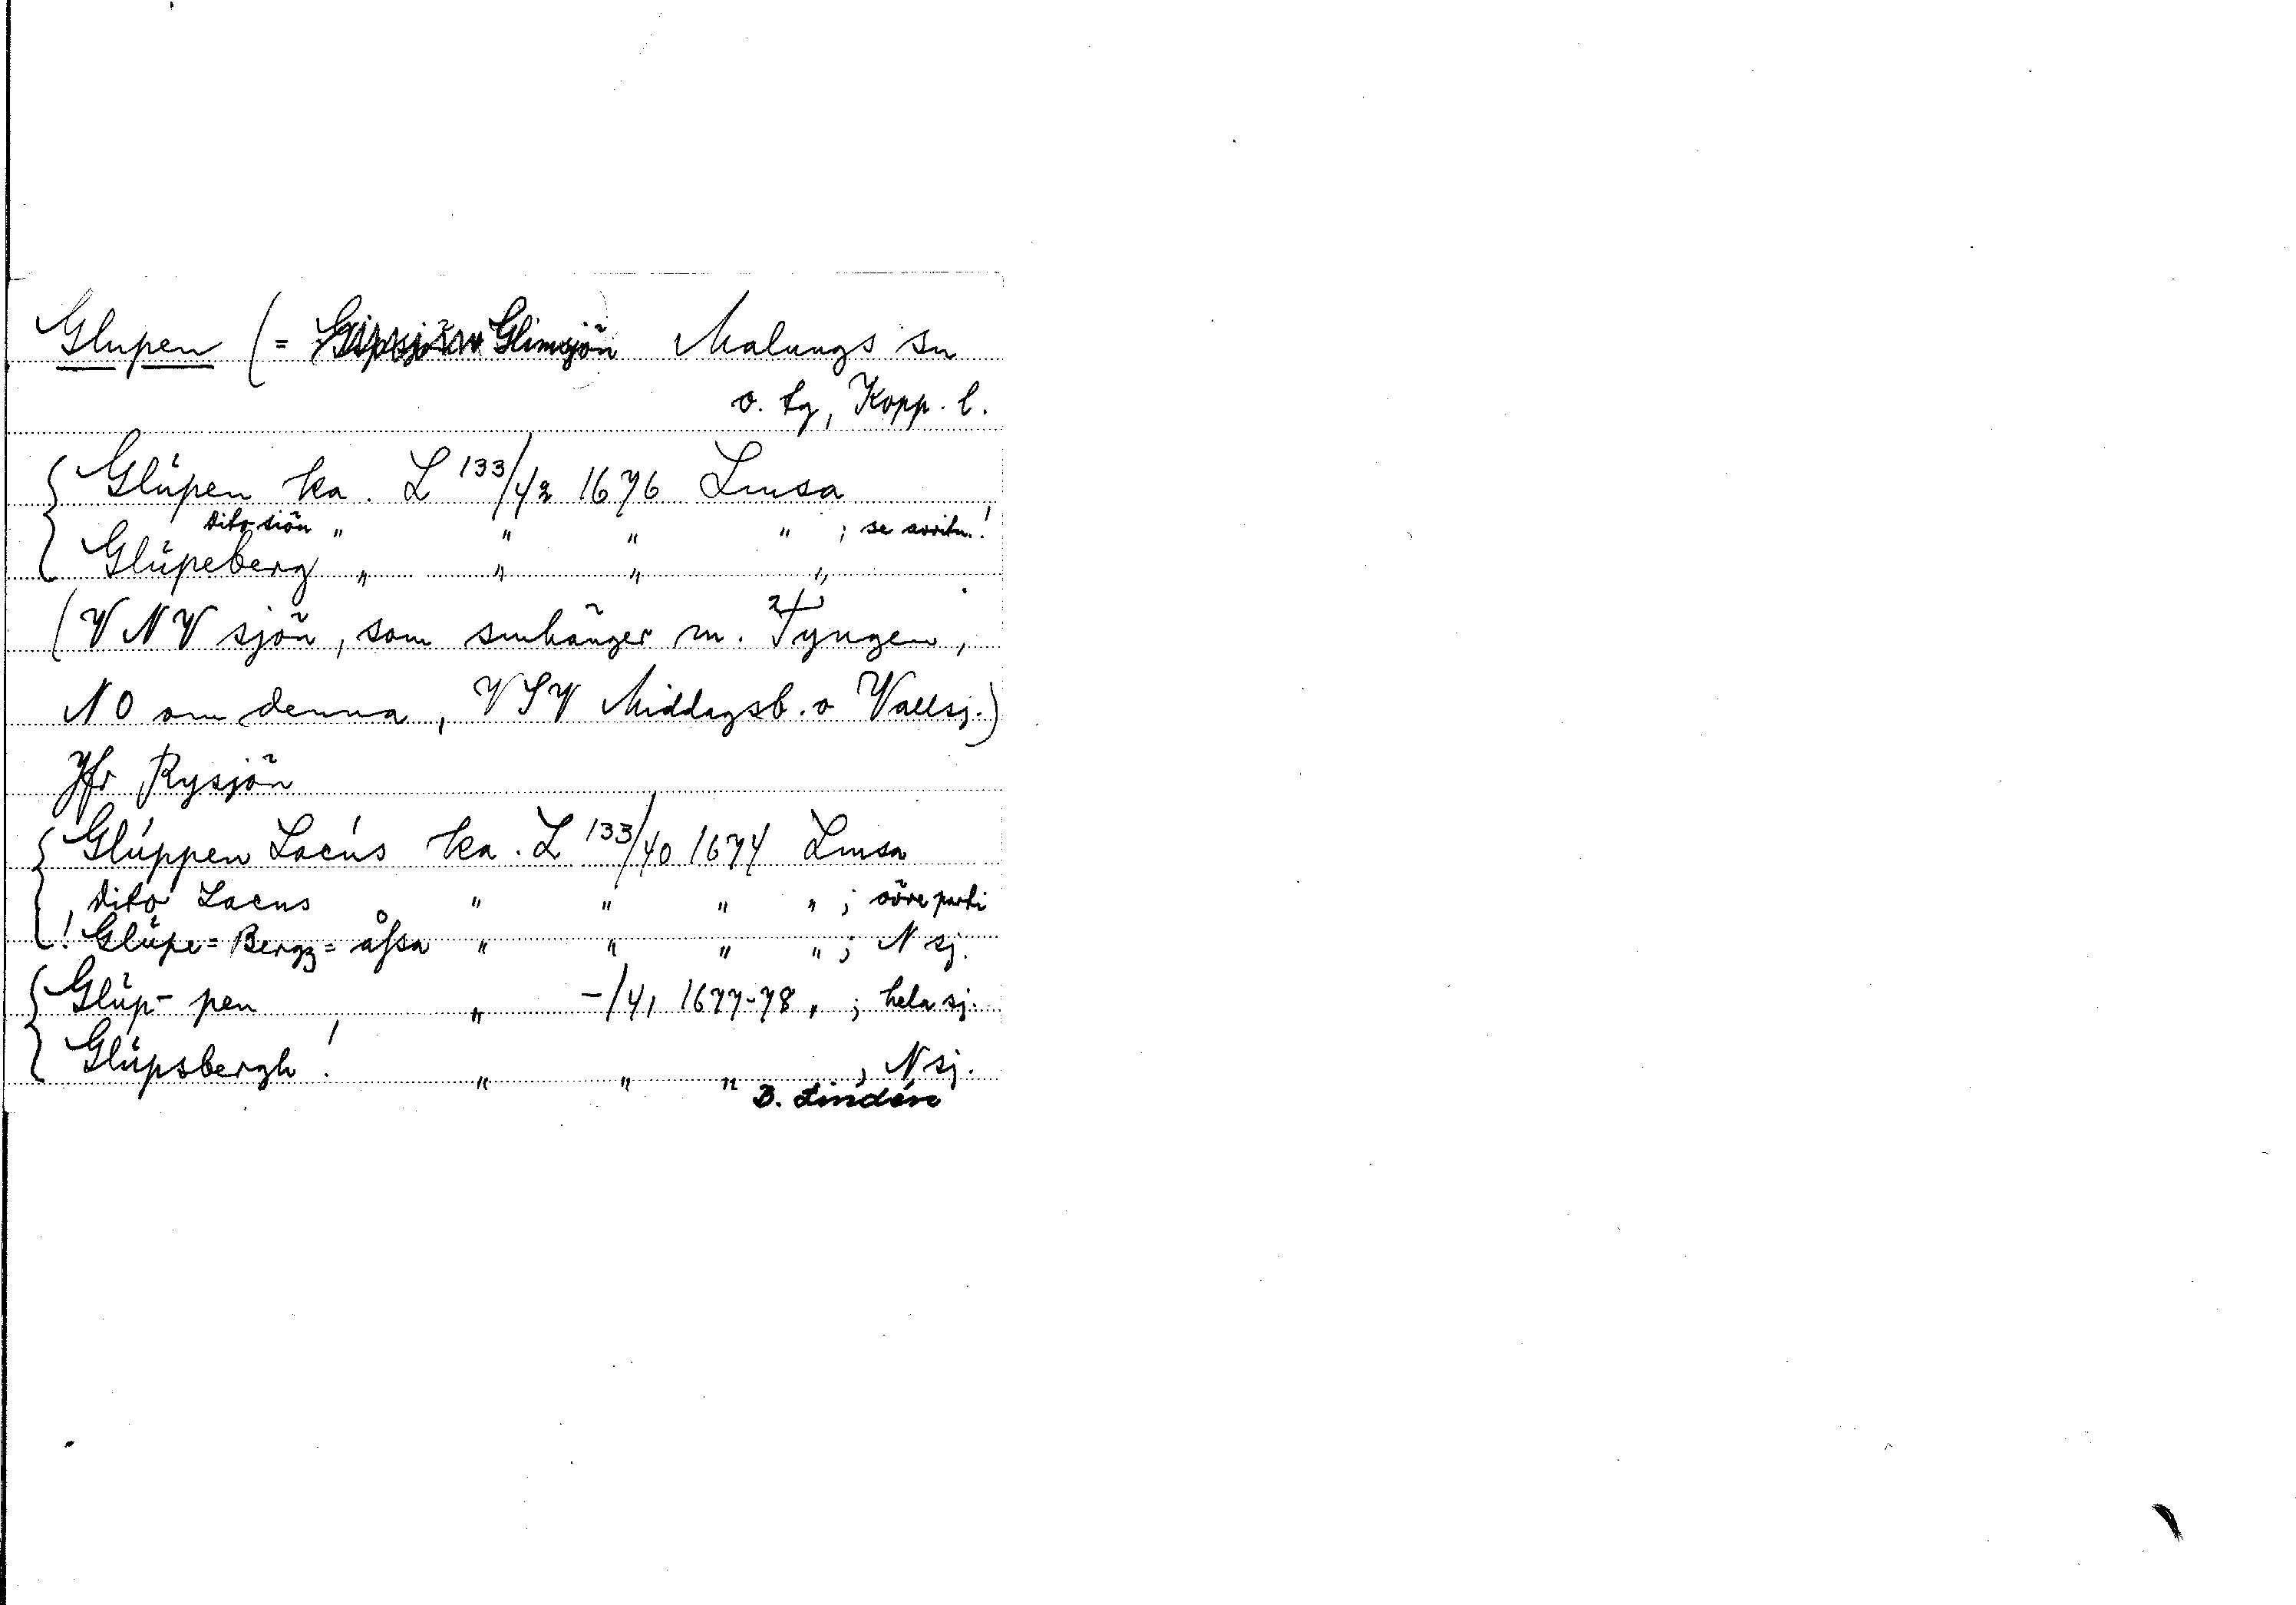 Glupen (= Glimsjön) Malungs sn
o. tg, Kopp. l.
Glŭpen ka. L 133/42 1676 Lmsa
Dito siön " " " " ; se avritn.!
Glŭpeberg " " " "
(V NV sjön, som smhänger m. Tyngen,
NO om denna, VSV Middagsb. o Vallsj.)
Jfr Rysjön
Glúppen Lacús ka. L 133/40 1674 Lmsa
Dito Lacus " " " " ; övre parti
! Glŭpe=Bergz=åsa " " " " ; N sj.
Glŭp- pen " -/41 1677-78 " ; hela sj.
Glŭpsbergh! " " " , N sj.
B. Lindén